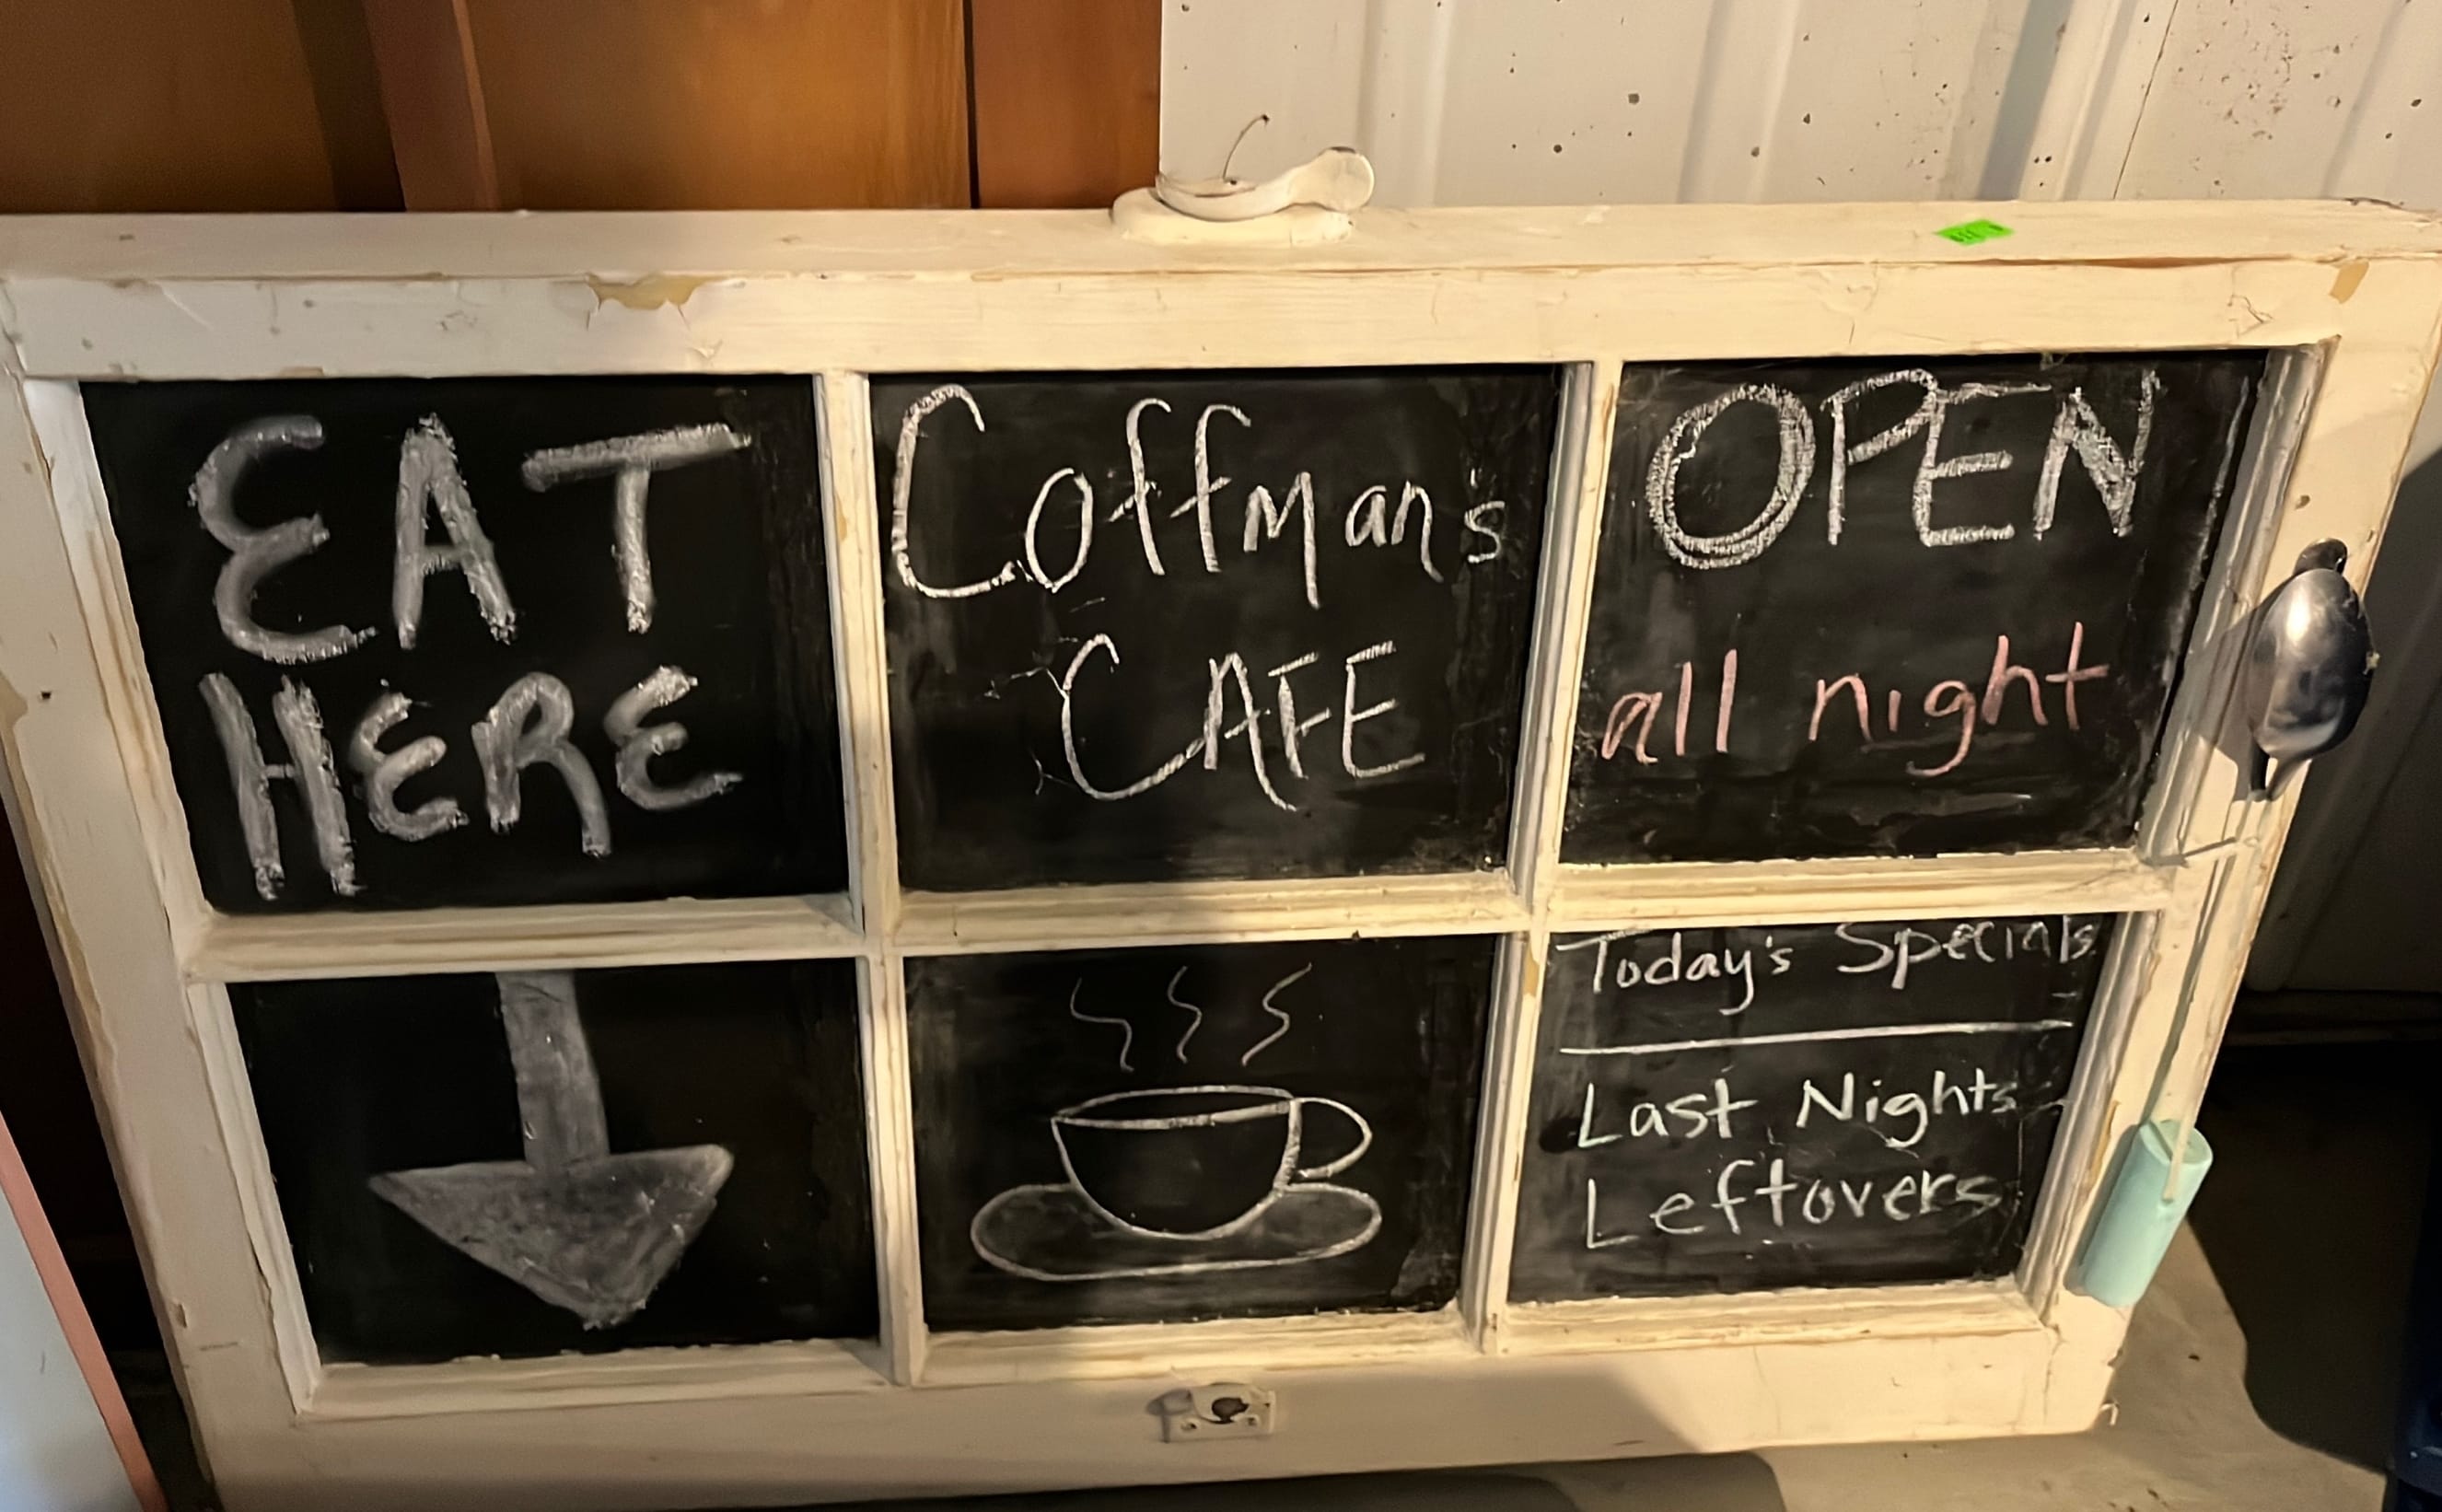 EAT
HERE
Coffman's
CAFE
OPEN
all night
Today's Specials
Last Nights
Leftovers